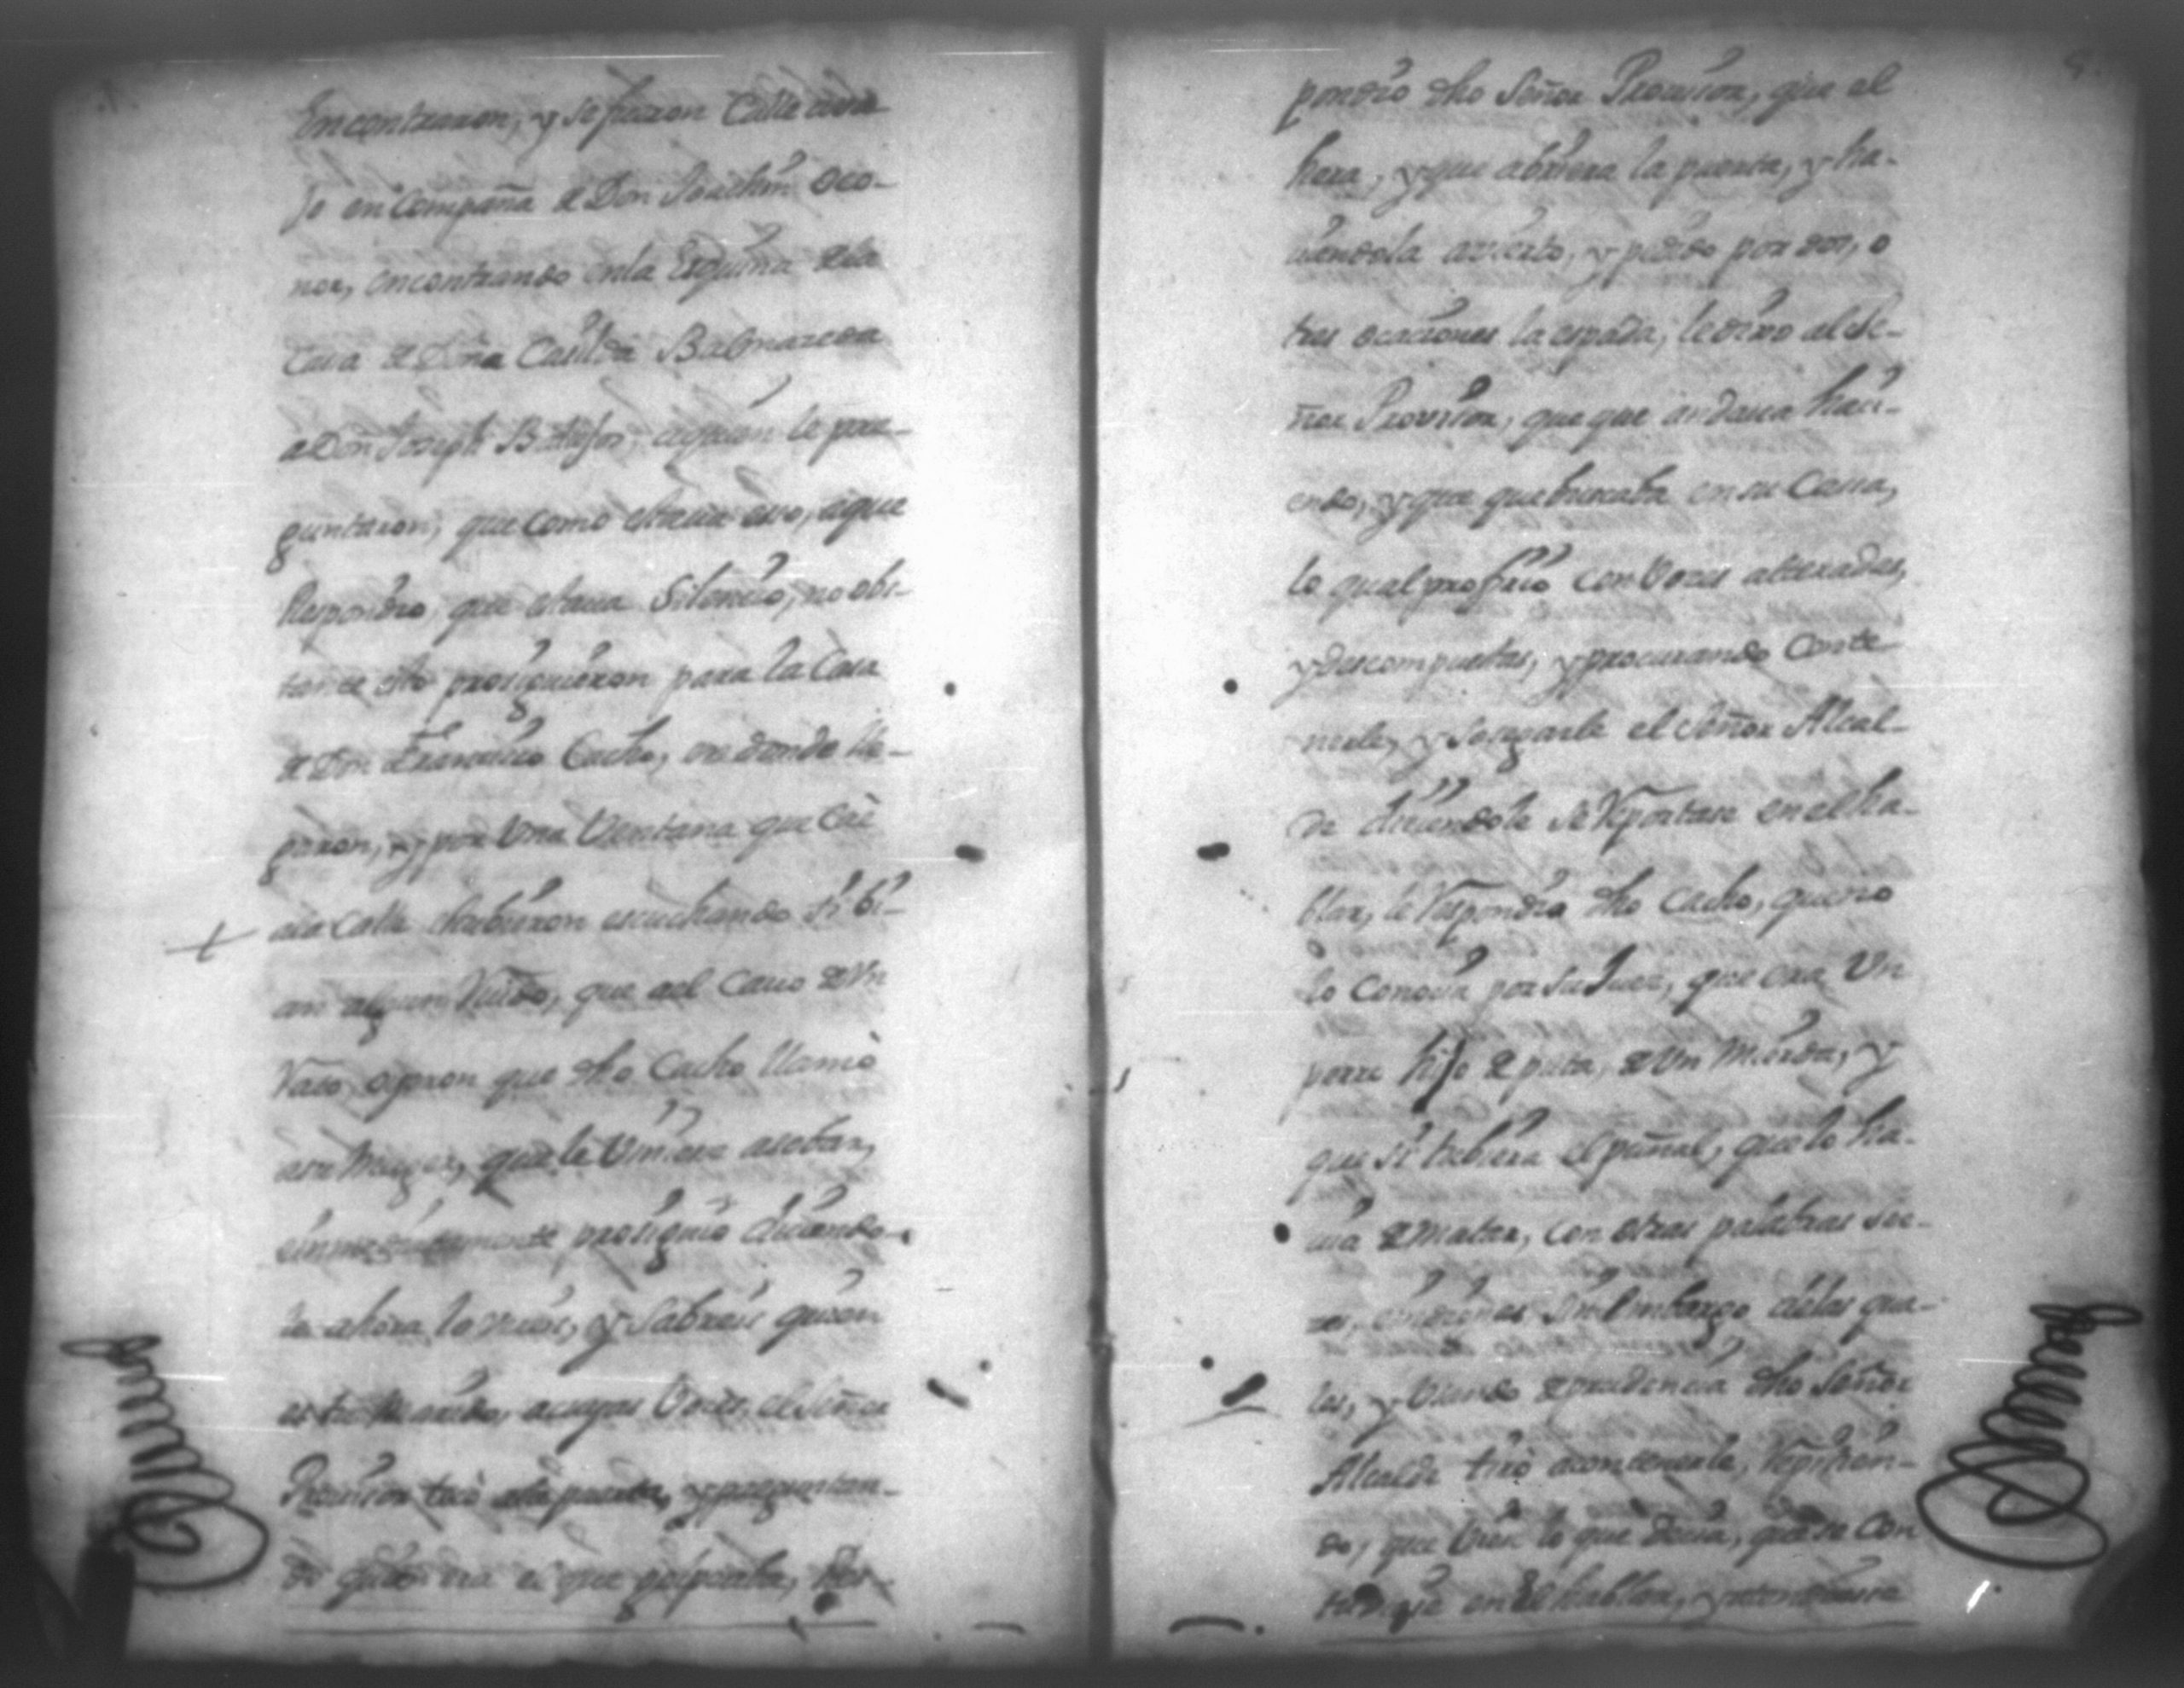 Encontraron, y se fueron Calle ava
jo en Compaña de Don Joachin oco-
nor, encontrando en la Esquina de la
Casa de Doña Casilda Balmazeda
a Don Joseph a quien le pre-
guntaron, que como estaua eso, a que
Respondio que estaua Silencio, no obs-
tante esto prosiguieron para la Casa
de Don Francisco Cacho, en donde lle-
garon, y por Una Ventana que Cáe
a la Calle estubieron escuchando si oi-
an algun Ruido, que ael cauo de Vn
Rato, oyeron que dho Cacho llamó
a su Muger, que le Viniera a sobar,
e inmediatamente prosiguió diciendo-
le ahora lo vereis, y Sabreis quien
es tu Marido, a cuyas Voces el Señor
Prouisor tocó a la puerta, y preguntan-
do quien era el que golpeaba, Res-
pondio dho Señor Prouisor, que el
hera, y que abriera la puerta, y ha-
uiendola avierto, y pedido por dos, o
tres ocaciones la espada, le dixo al Se-
ñor Provisor, que que andaua haci-
endo, y que que buscaba en su Casa,
lo qual profirió con Vozes alteradas,
y descompuestas, y procurando Conte
nerle, y Sosegarle el Señor Alcal-
de diciendole se Reportase en el ha-
blar, le Respondio dho Cacho, que no
lo Conocia por su Juez, que era Vn
perro hijo de puta, de Vn Mierda, y
que si tubiera el puñal, que lo ha-
uia de matar, con otras palabras su-
cias, e Sin Embargo de las qua-
les, y Usando de prudencia dho Señor
Alcalde tiró a contenerle, Repitien-
do, que Viera lo que decia, que se Con
tubiese en el hablar, y